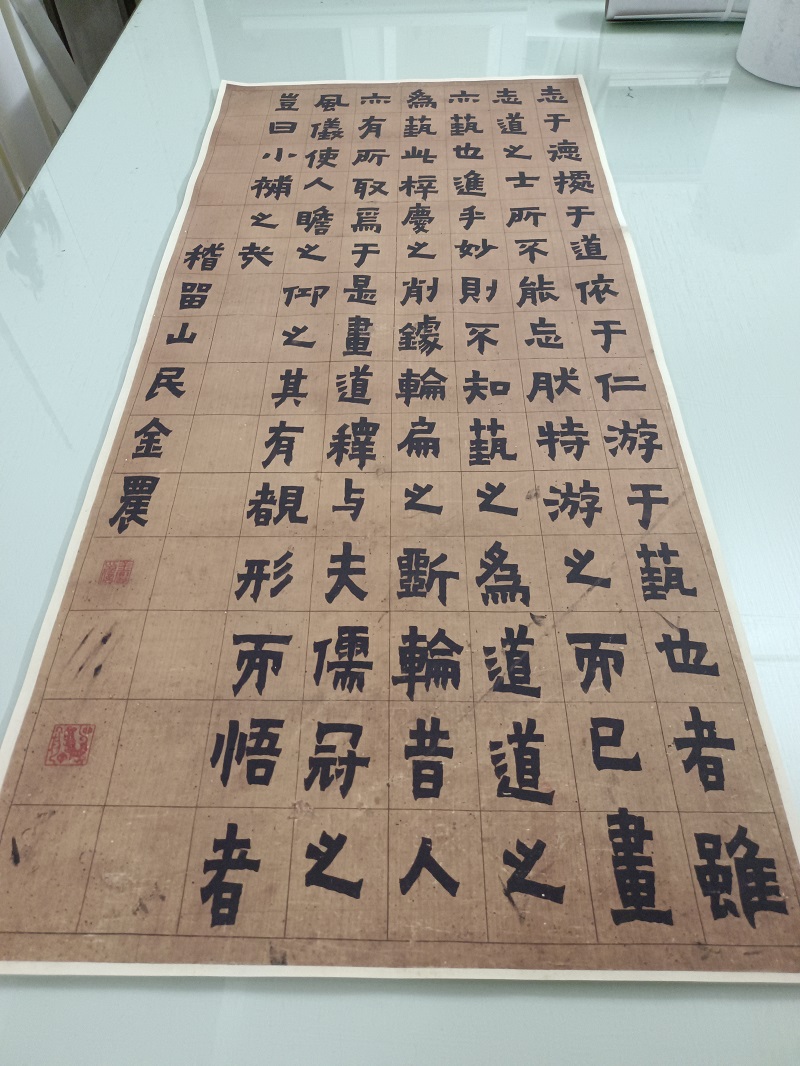 志于德據于道依于仁游于蓺也者雖
志道之士所不能忘肰特游之而已畫
亦蓺也進乎妙則不知蓺之為道道之
為蓺此梓慶之削鐻輪扁之斲輪昔人
亦有所取焉于是畫道釋与夫儒冠之
風儀使人瞻之仰之其有覩形而悟者
豈曰小補之哉
稽留山民金農